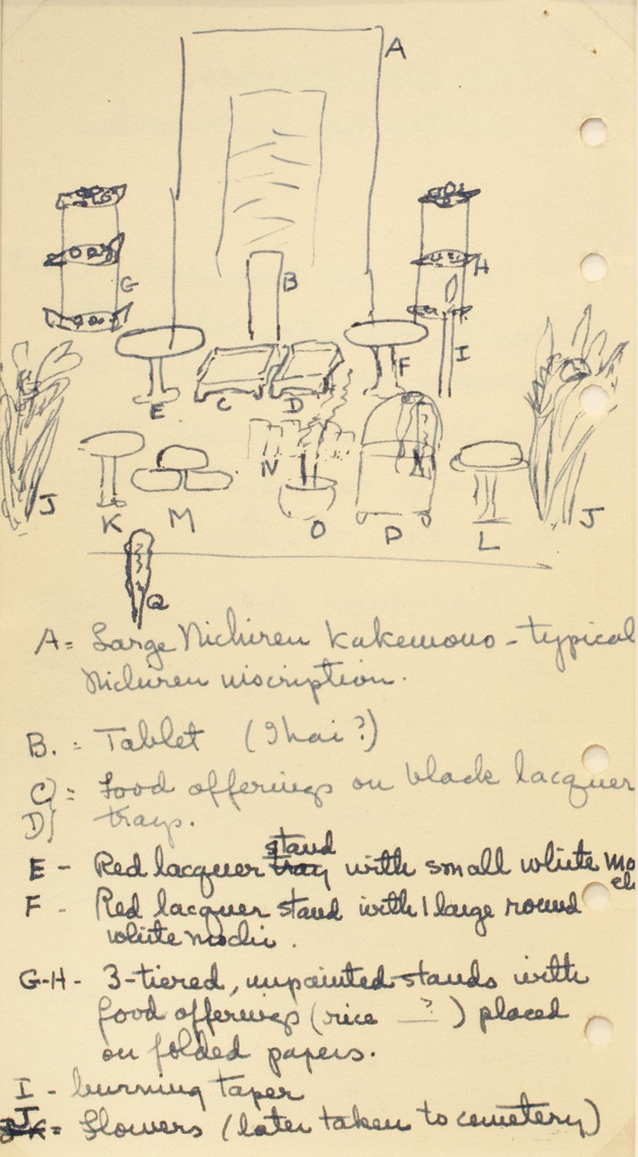 A
B
G
H
I
E
C
D
F
J
K
M
N
O
P
L
J
Q
A = Large Nichiren Kakemono - typical
Nichiren inscription.
B. = Tablet (Ihai?)
C) = Food offerings on black lacquer
D) trays.
stand
E - Red lacquer tray with small white mo
chi
F - Red lacquer stand with 1 large round
white mochi.
G-H - 3-tiered, unpainted stands with
food offerings (rice __?__) placed
on folded papers.
I - burning taper
J
= Flowers (later taken to cemetery)